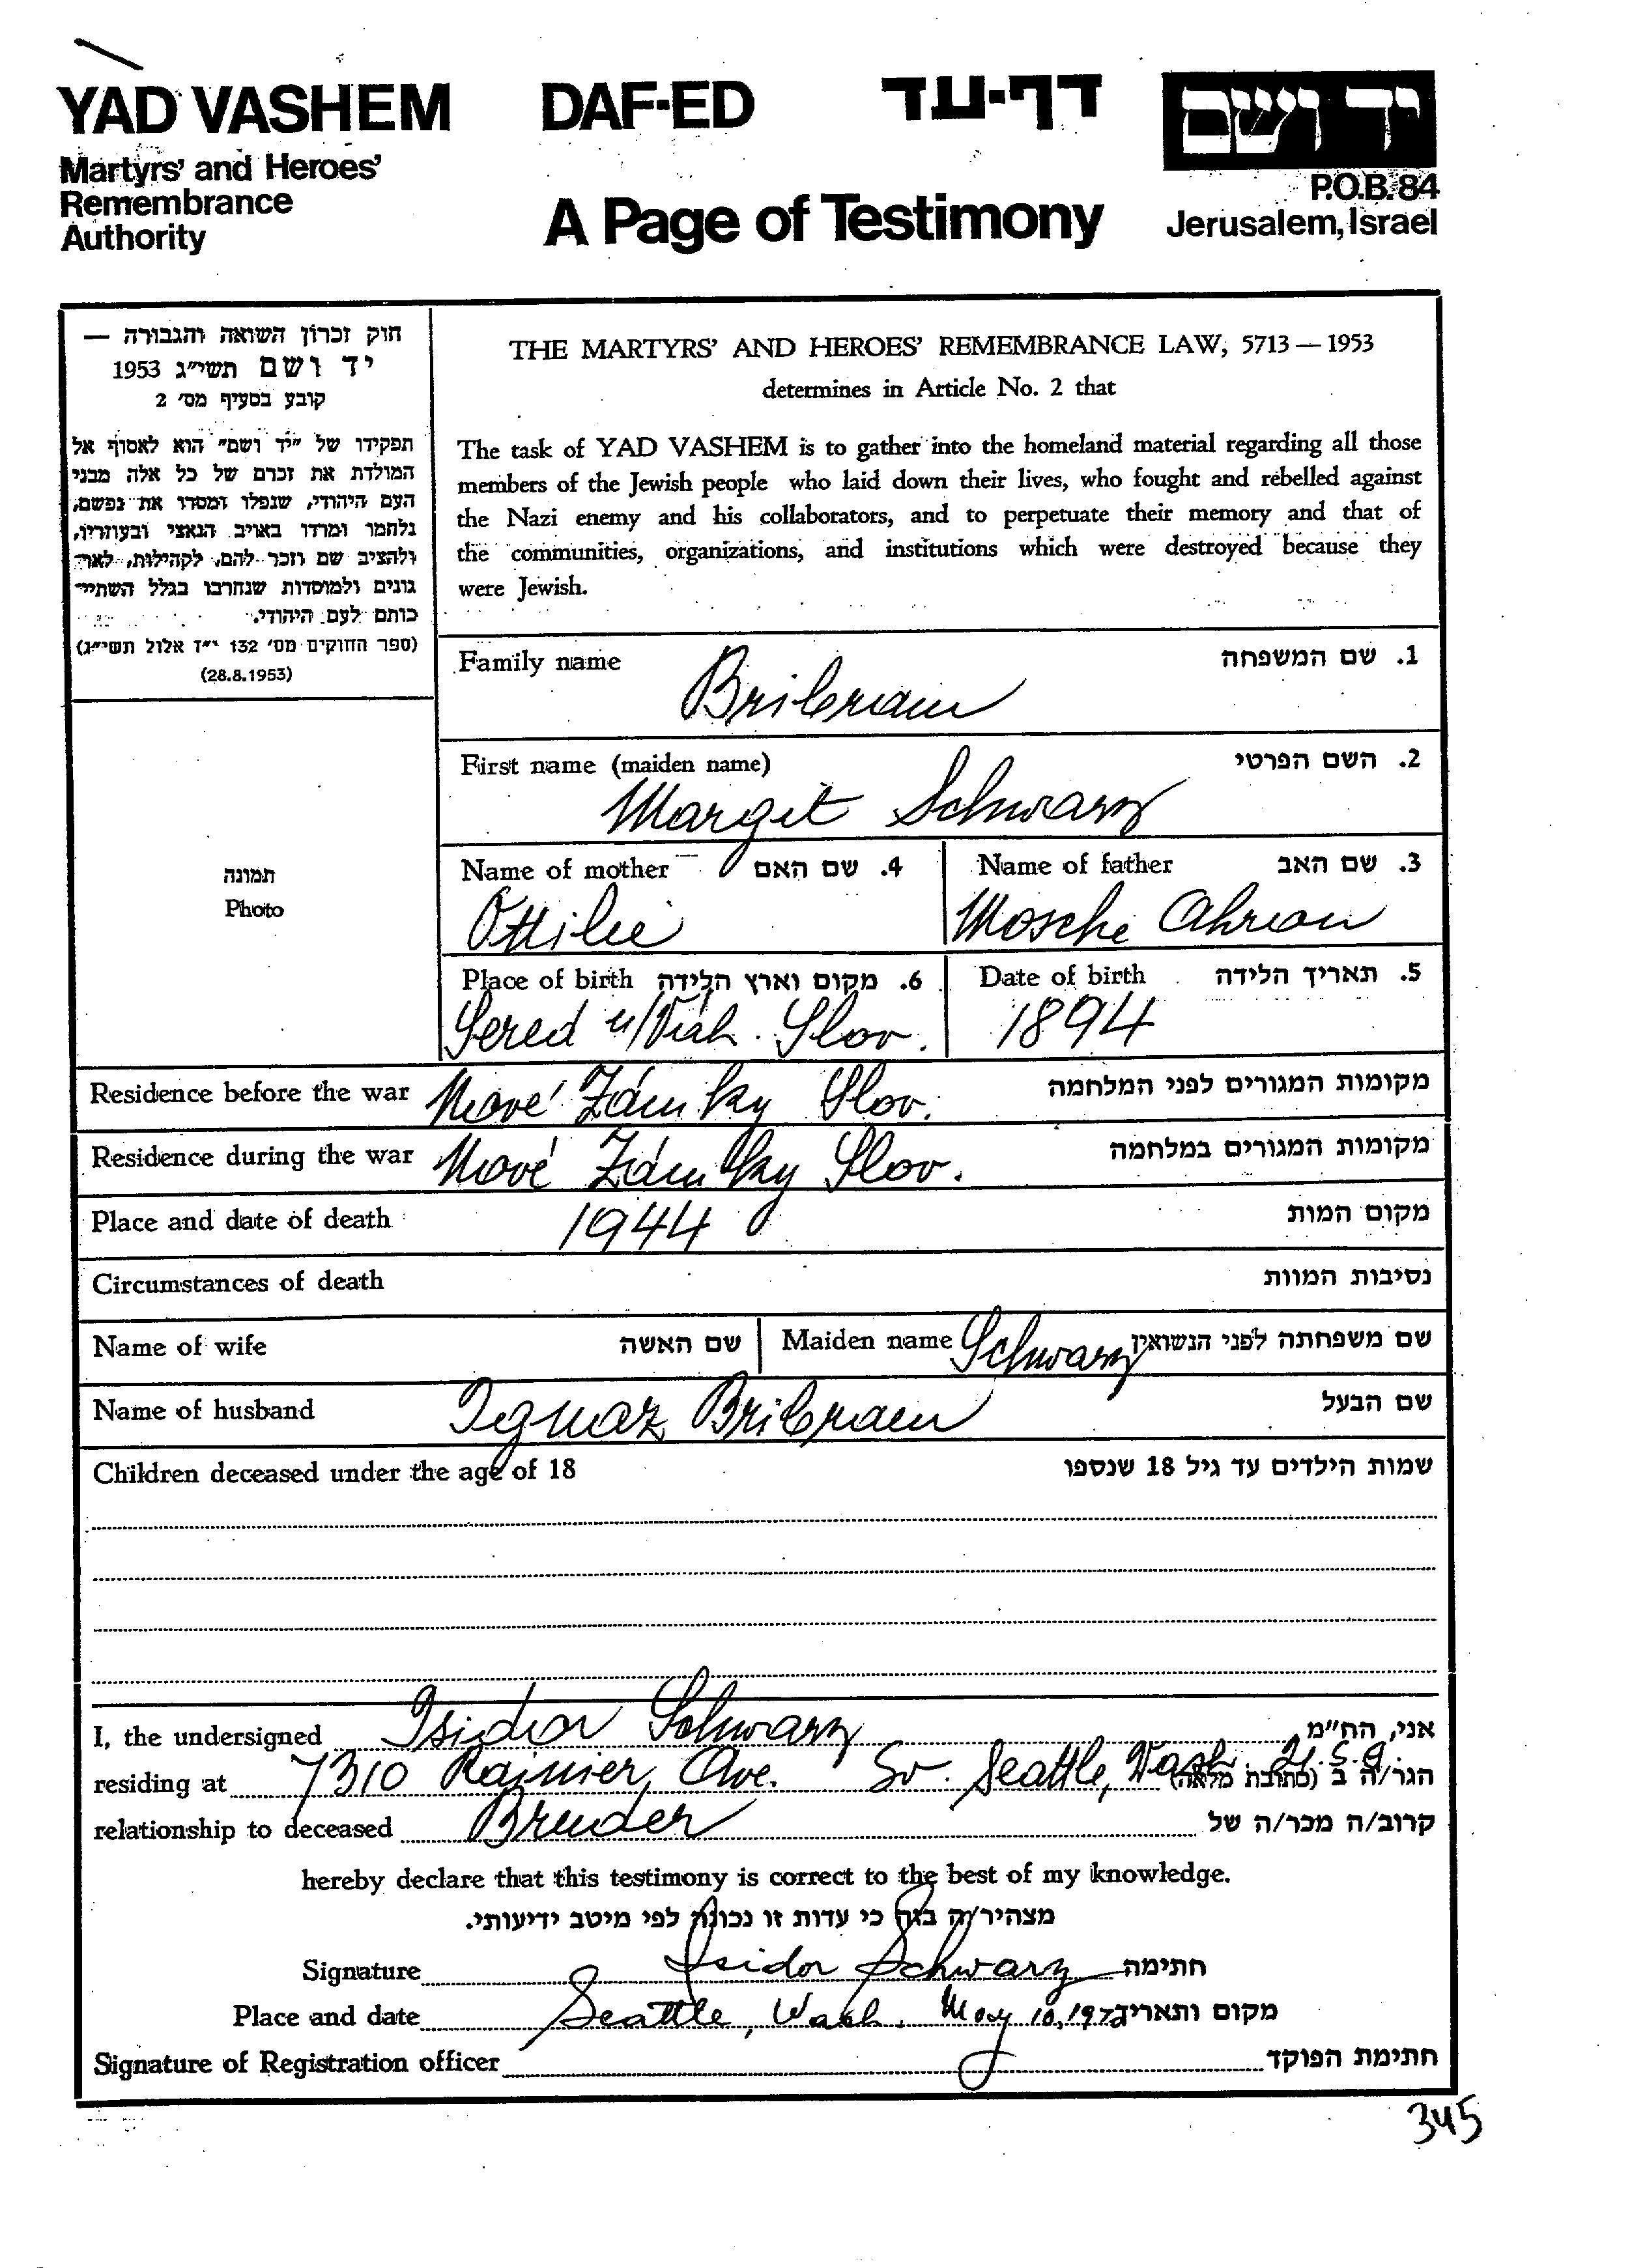 YAD VASHEM DAF-ED דף-עד יד ושם
Martyrs' and Heroes'
Remembrance
Authority
A Page of Testimony
P.O.B. 84
Jerusalem, Israel
חוק זכרון השואה והגבורה —
יד ושם תשי"ג 1953
קובע בסעיף מס' 2
תפקידו של "יד ושם" הוא לאסוף אל
המולדת את זכרם של כל אלה מבני
העם היהודי, שנפלו ומסרו את נפשם,
נלחמו ומרדו באויב הנאצי ובעוזריו,
ולהציב שם וזכר להם, לקהילות, לאר-
גונים ולמוסדות שנחרבו בגלל השתיי-
כותם לעם היהודי.
(ספר החוקים מס' 132 י"ד אלול תשי"ג)
(28.8.1953)
תמונה
Photo
THE MARTYRS' AND HEROES' REMEMBRANCE LAW, 5713 — 1953
determines in Article No. 2 that
The task of YAD VASHEM is to gather into the homeland material regarding all those
members of the Jewish people who laid down their lives, who fought and rebelled against
the Nazi enemy and his collaborators, and to perpetuate their memory and that of
the communities, organizations, and institutions which were destroyed because they
were Jewish.
Family name 1. שם המשפחה
Bribram
First name (maiden name) 2. השם הפרטי
Margit Schwarz
Name of mother 4. שם האם Name of father 3. שם האב
Ottilie Mosche Ahron
Place of birth 6. מקום וארץ הלידה Date of birth 5. תאריך הלידה
Sered Slov. 1894
Residence before the war Nové Zámky Slov. מקומות המגורים לפני המלחמה
Residence during the war Nové Zámky Slov. מקומות המגורים במלחמה
Place and date of death 1944 מקום המות
Circumstances of death נסיבות המוות
Name of wife שם האשה Maiden name Schwarz שם משפחתה לפני הנשואין
Name of husband Ignaz Bribram שם הבעל
Children deceased under the age of 18 שמות הילדים עד גיל 18 שנספו
I, the undersigned Isidor Schwarz אני, הח"מ
residing at 7310 Rainier, Ave. So. Seattle, Wash. U.S.A. הגר/ה ב (כתובת מלאה)
relationship to deceased Bruder קרוב/ה מכר/ה של
hereby declare that this testimony is correct to the best of my knowledge.
מצהיר/ה בזה כי עדות זו נכונה לפי מיטב ידיעותי.
Signature Isidor Schwarz חתימה
Place and date Seattle, Wash. May 10, 1972 מקום ותאריך
Signature of Registration officer חתימת הפוקד
345